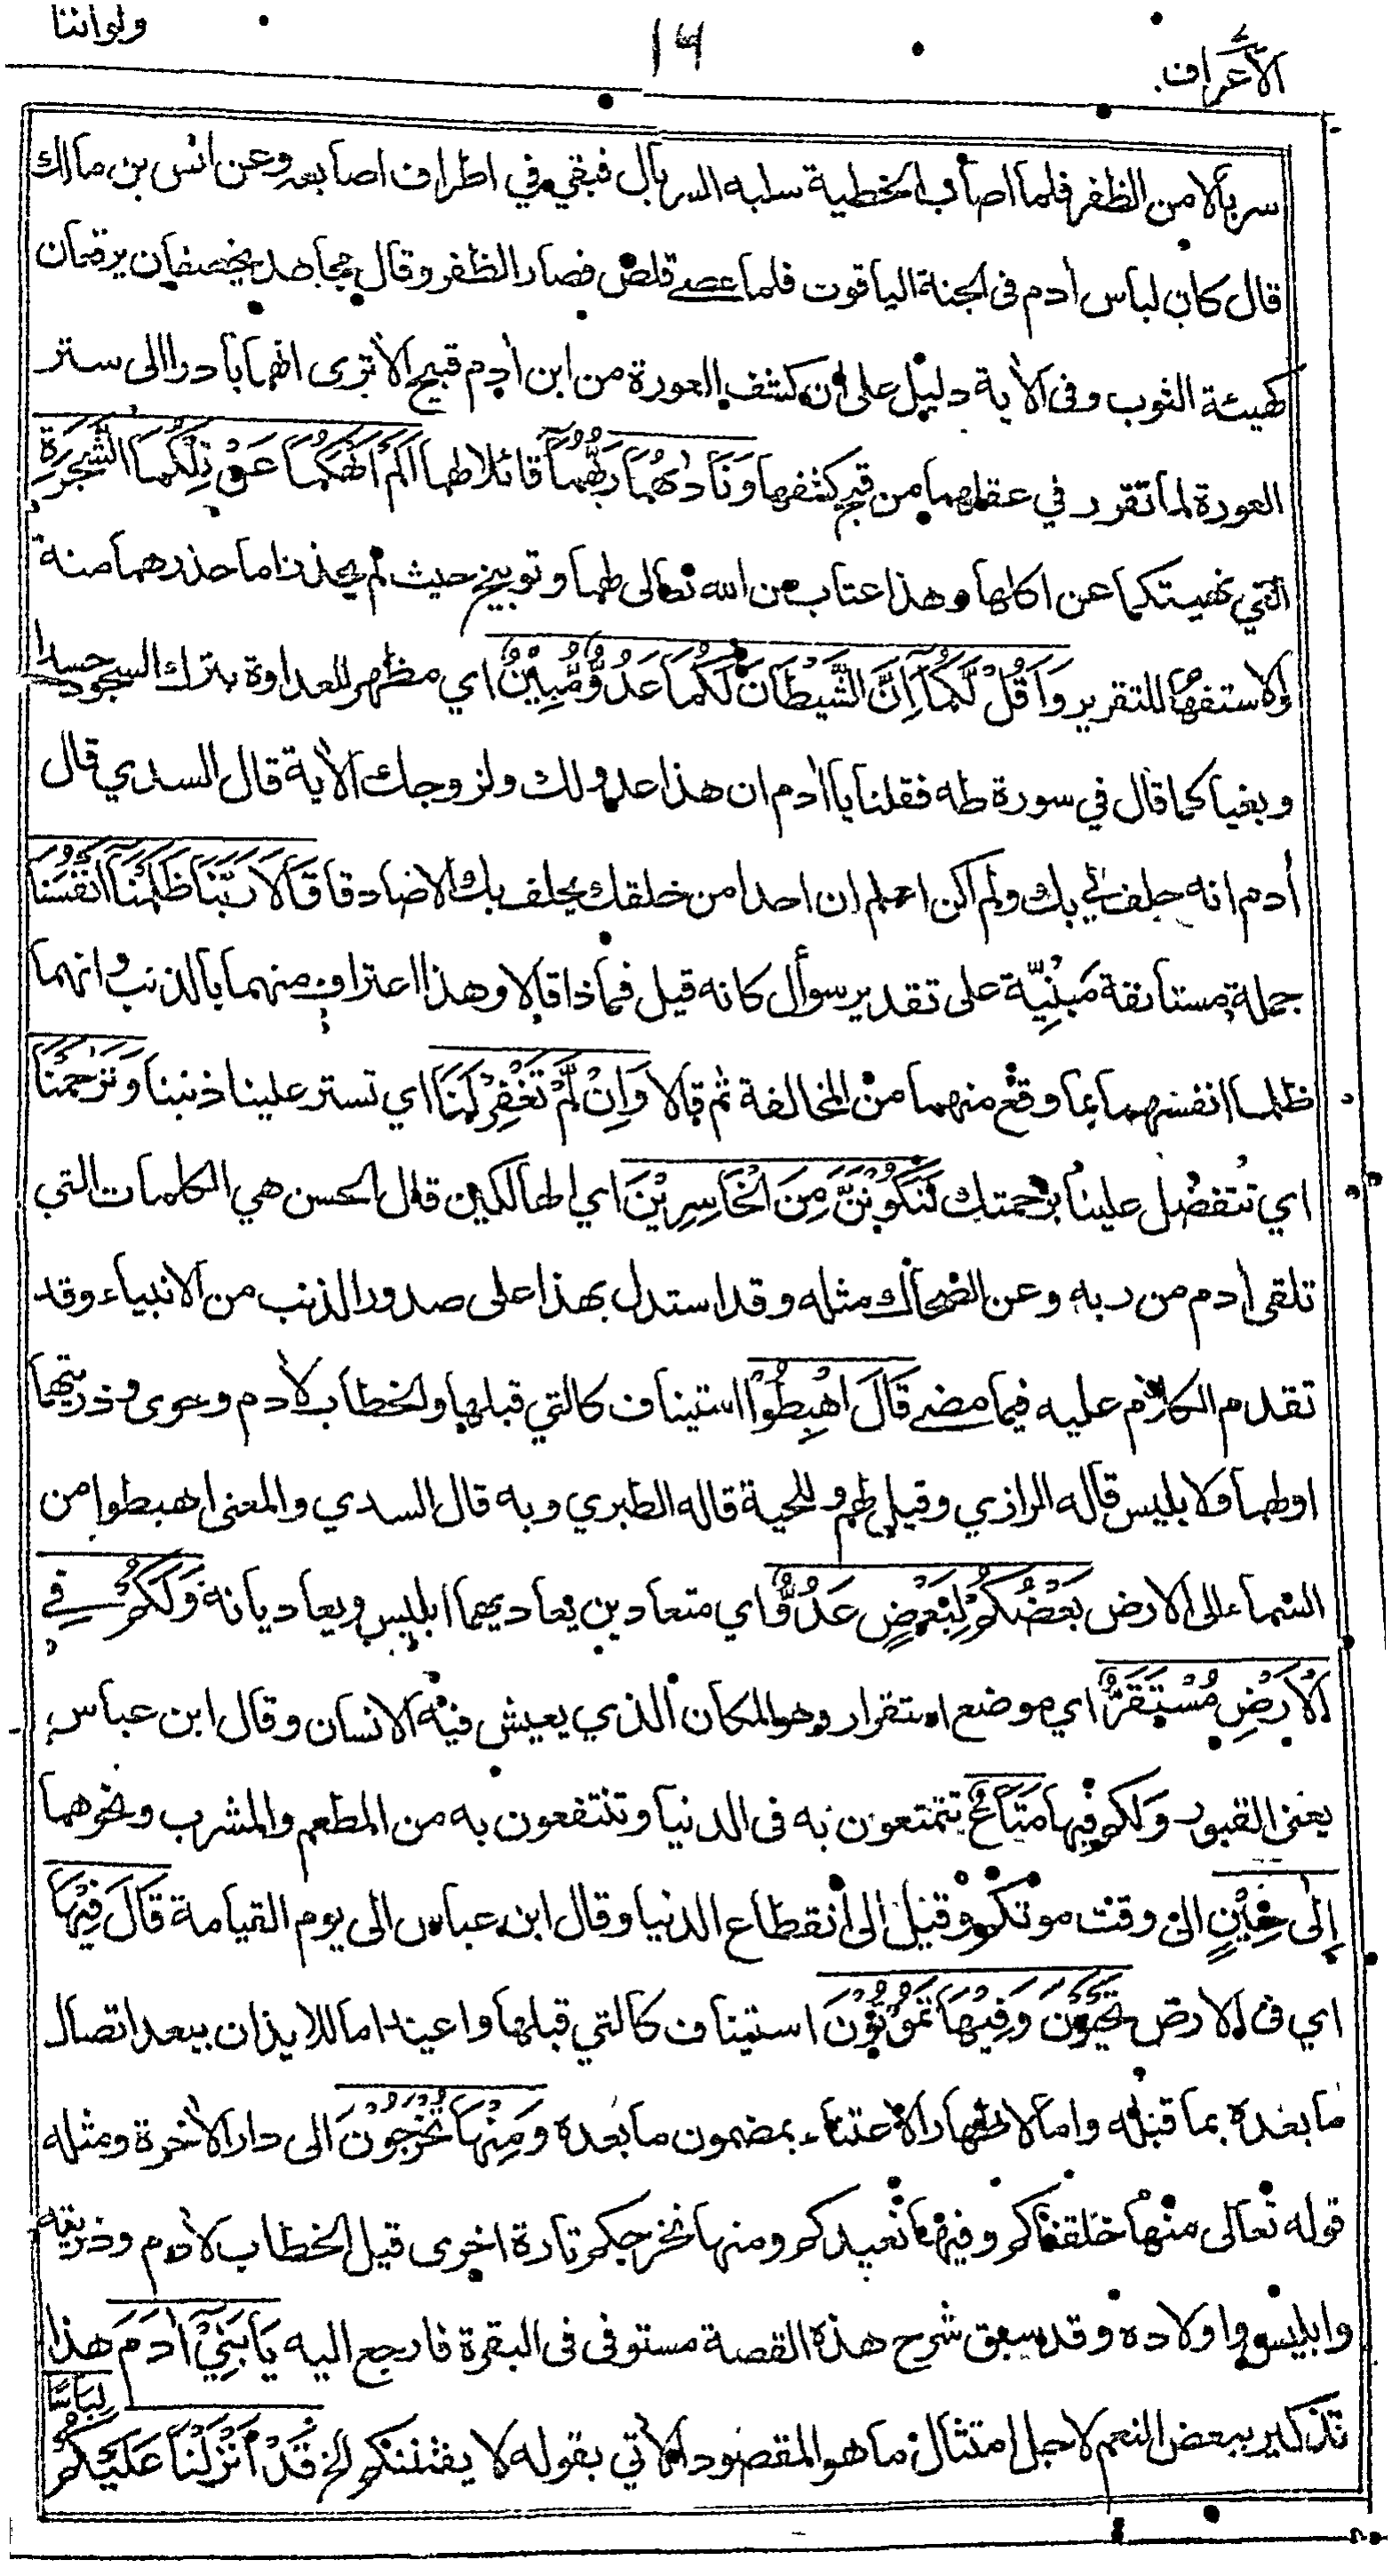 ولواننا
١٦
الأعراف
سربالا من الظفر فلما اصاب الخطية سلبه السربال فبقي في اطراف اصابعه وعن انس بن مالك
قال كان لباس اٰدم فى الجنة الياقوت فلما عصى قلص فصار الظفر وقال مجاهد يخصفان يرقعان
كهيئة الثوب وفى الاٰية دليل على ان كشف العورة من ابن اٰدم قبيح الا ترى انهما بادرا الى ستر
العورة لما تقرر في عقلهما من قبح كشفها وَنَادٰىهُمَا رَبُّهُمَآ قائلا لهما اَلَمْ اَنْهَكُمَا عَنْ تِلْكُمَا الشَّجَرَةِ
التي نهيتكما عن اكلها وهذا عتاب من الله تعالى لهما وتوبيخ حيث لم يحذرا ما حذرهما منه
والاستفهام للتقرير وَاَقُلْ لَّكُمَآ اِنَّ الشَّيْطَانَ لَكُمَا عَدُوٌّ مُّبِيْنٌ اي مظهر للعداوة بترك السجود حسدا
وبغيا كما قال في سورة طه فقلنا يا اٰدم ان هذا عدو لك ولزوجك الاٰية قال السدي قال
اٰدم انه حلف لي بك ولم اكن اعلم ان احدا من خلقك يحلف بك الا صادقا قَالَا رَبَّنَا ظَلَمْنَآ اَنْفُسَنَا
جملة مستانفة مَبْنِيَّة على تقدير سوأل كانه قيل فماذا قالا وهذا اعتراف منهما بالذنب وانهما
ظلما انفسهما بما وقع منهما من المخالفة ثم قالا وَاِنْ لَّمْ تَغْفِرْ لَنَا اي تستر علينا ذنبنا وَتَرْحَمْنَا
اي تتفضل علينا برحمتك لَنَكُوْنَنَّ مِنَ الْخَاسِرِيْنَ اي الهالكين قال الحسن هي الكلمات التي
تلقى اٰدم من ربه وعن الضحاك مثله وقد استدل بهذا على صدور الذنب من الانبياء وقد
تقدم الكلام عليه فيما مضى قَالَ اهْبِطُوْا استيناف كالتي قبلها والخطاب لاٰدم وحوى وذريتهما
اولهما ولابليس قاله الرازي وقيل لهم وللحية قاله الطبري وبه قال السدي والمعنى اهبطوا من
السماء الى الارض بَعْضُكُمْ لِبَعْضٍ عَدُوٌّ اي متعادين يعاديهما ابليس ويعاديانه وَلَكُمْ فِي
الْاَرْضِ مُسْتَقَرٌّ اي موضع استقرار وهو المكان الذي يعيش فيه الانسان وقال ابن عباس
يعنى القبور وَلكم فيها مَتَاعٌ تتمتعون به فى الدنيا وتنتفعون به من المطعم والمشرب ونحوهما
اِلٰى حِيْنٍ الى وقت موتكم وقيل الى انقطاع الدنيا وقال ابن عباس الى يوم القيامة قَالَ فِيْهَا
اي فى الارض تَحْيَوْنَ وَفِيْهَا تَمُوْتُوْنَ استيناف كالتي قبلها واعيد اما للايذان ببعد اتصال
ما بعده بما قبله واما لاظهار الاعتناء بمضمون ما بعده وَمِنْهَا تُخْرَجُوْنَ الى دار الاٰخرة ومثله
قوله تعالى منها خلقناكم وفيها نعيدكم ومنها نخرجكم تارة اخرى قيل الخطاب لاٰدم وذريته
وابليس واولاده وقد سبق شرح هذه القصة مستوفى فى البقرة فارجع اليه يَا بَنِيْٓ اٰدَمَ هذا
تذكير ببعض النعم لاجل امتثال ما هو المقصود الاٰتي بقوله لا يفتننكم الخ قَدْ اَنْزَلْنَا عَلَيْكُمْ لِبَاسًا